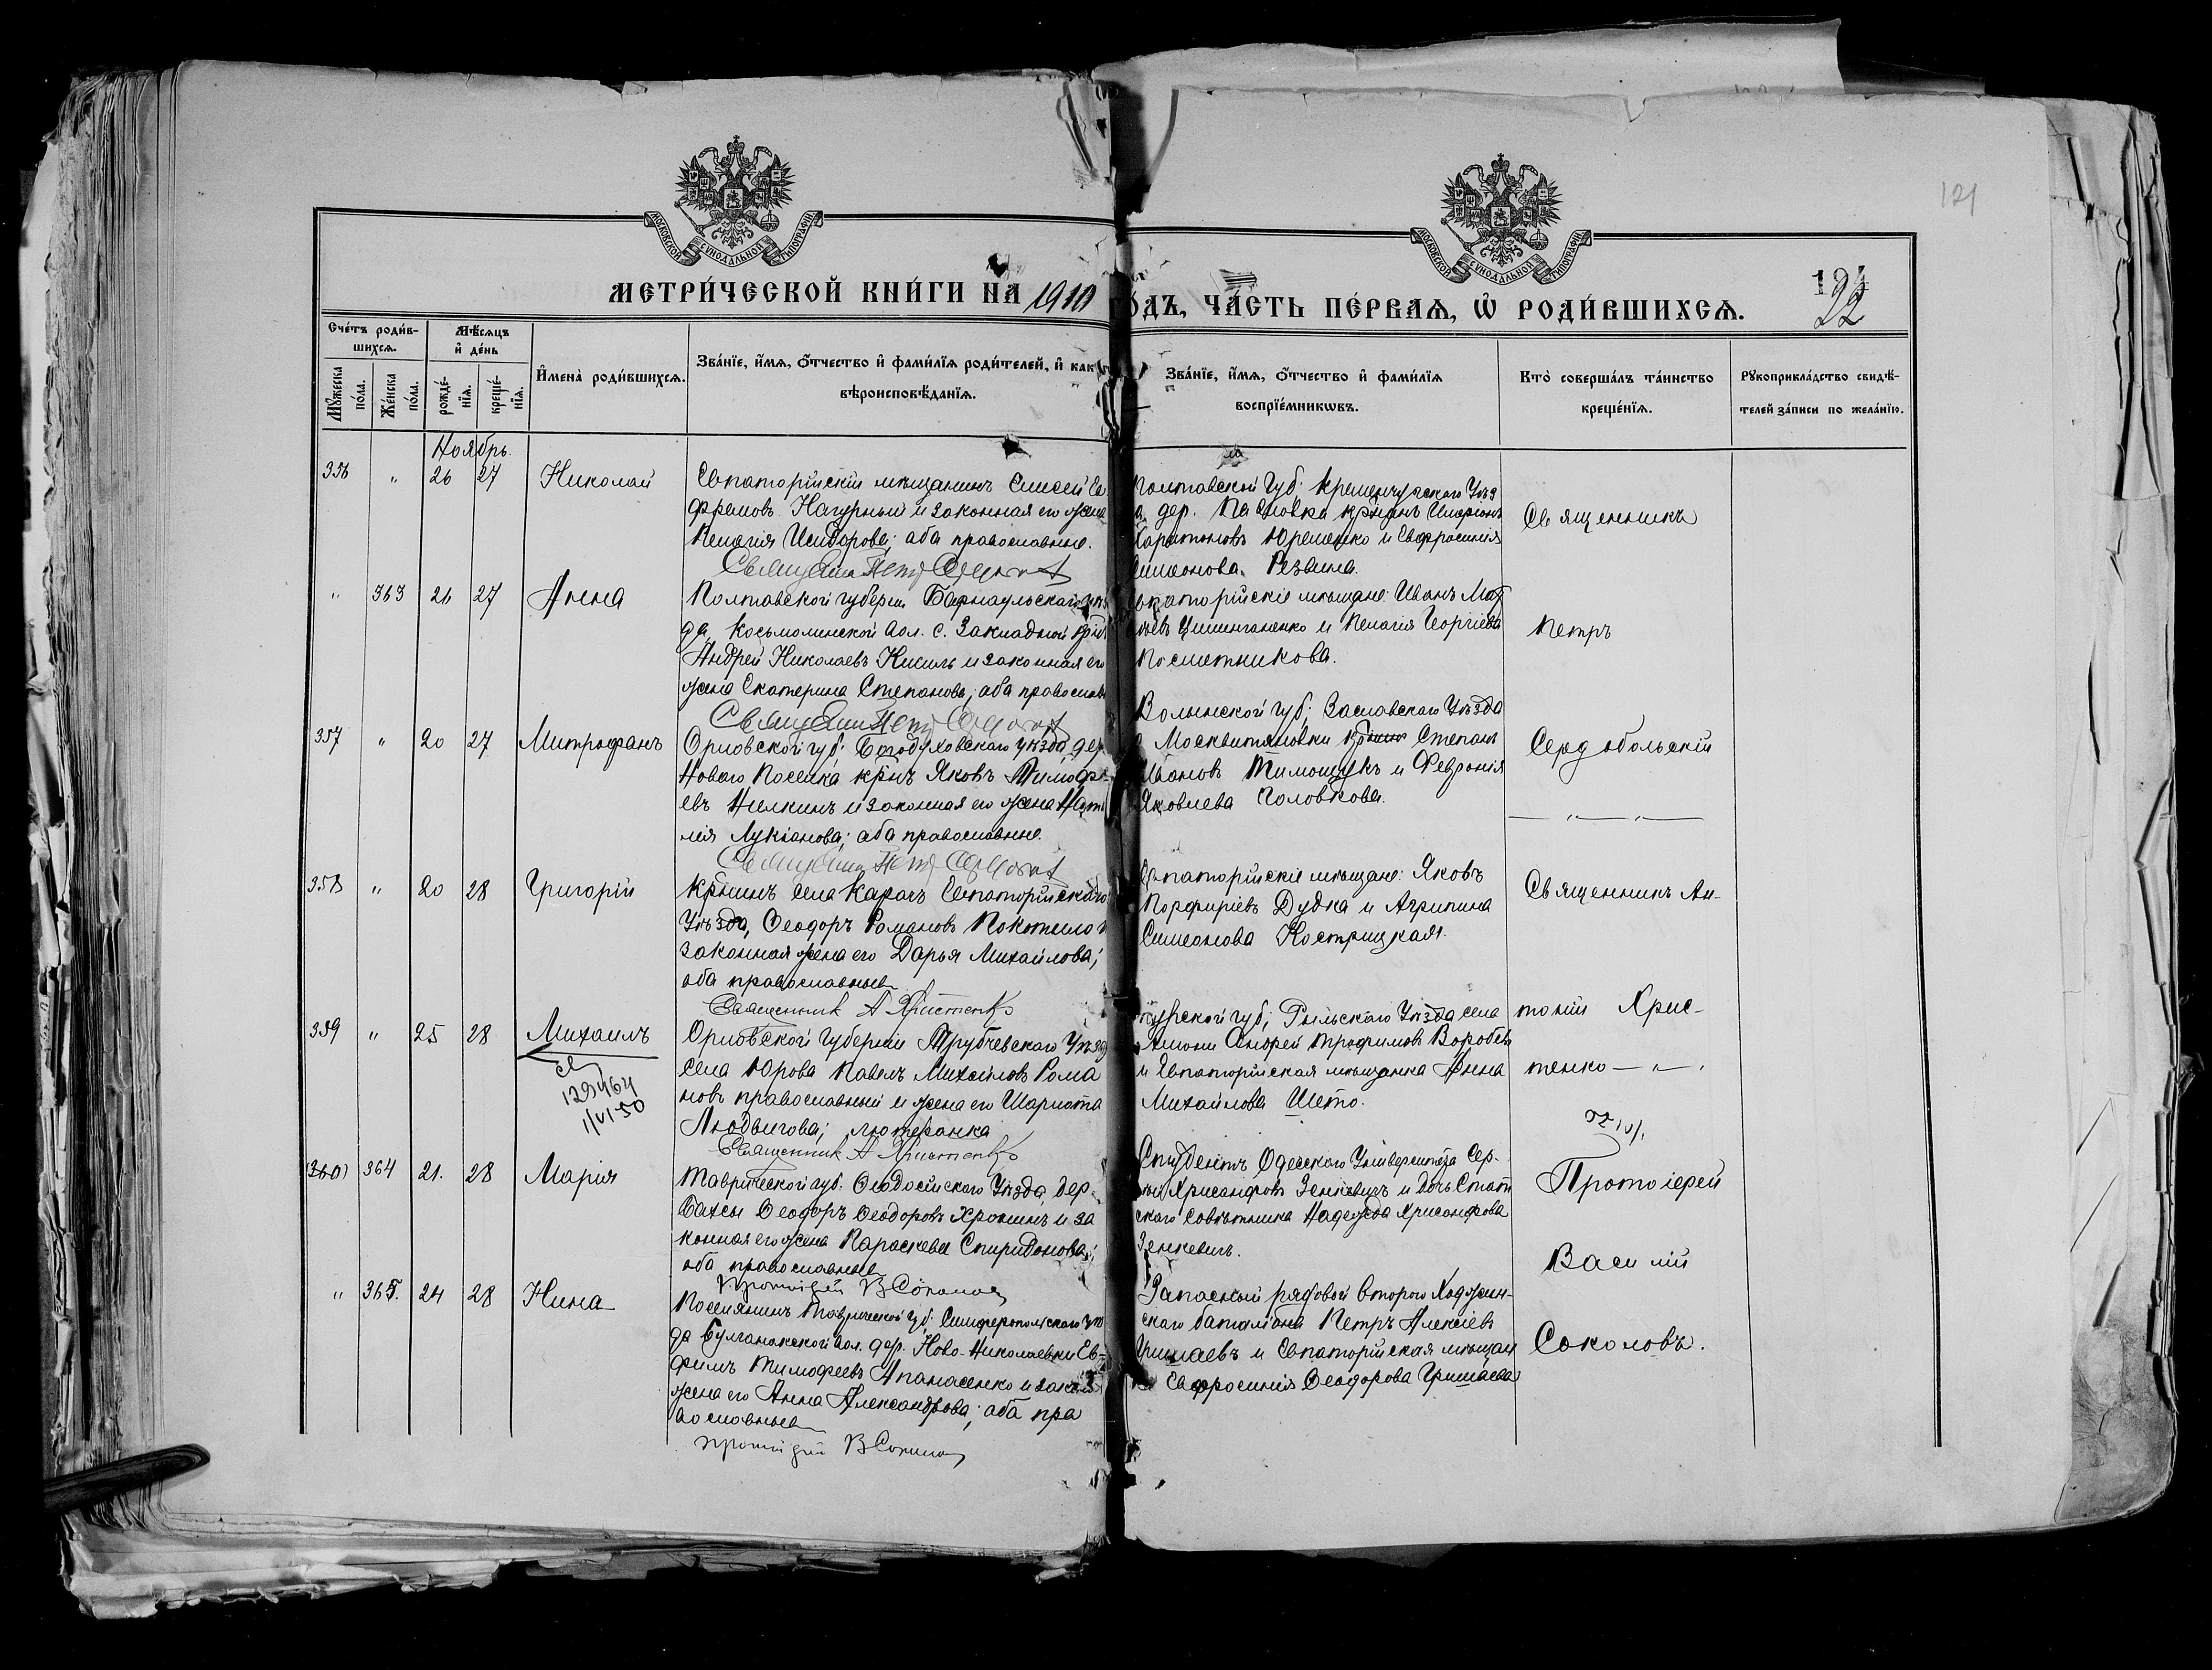 121
МОСКОВСКОЙ СѴНОДАЛЬНОЙ ТИПОГРАФІИ
МОСКОВСКОЙ СѴНОДАЛЬНОЙ ТИПОГРАФІИ
МЕТРИ́ЧЕСКОЙ КНИ́ГИ НА 1910
ГОДЪ, ЧА́СТЬ ПЕ́РВАѦ, Ѡ РОДИ́ВШИХСѦ.
122
Сче́тъ роди́в-
шихсѧ.
Мѣ́сѧцъ
и҆ де́нь
Мꙋ́жеска
по́ла.
Же́нска
по́ла.
рожде́-
нїѧ.
креще́-
нїѧ.
И҆мена̀ роди́вшихсѧ.
Зва́нїе, и҆́мѧ, ѻ҆́тчество и҆ фами́лїѧ роди́телей, и҆ как
вѣроисповѣ́данїѧ.
Зва́нїе, и҆́мѧ, ѻ҆́тчество и҆ фами́лїѧ
воспрїе́мникѡвъ.
Кто̀ соверша́лъ та́инство
креще́нїѧ.
Рꙋкоприкла́дство свидѣ́-
телей за́писи по жела́нїю.
Ноябрь.
356 " 26 27 Николай
Евпаторійскій мѣщанинъ Елисей Ев
фремовъ Нагурный и законная его жена
Пелагія Исидорова; оба православные.
Полтавской губ. Кременчугского Уѣз
дер. Павловка
Харитоновъ Юрешко и Евфросинія
Симеонова Резвина.
Священникъ
" 363 26 27 Анна
Полтавской губерн. Барнаульскаго уѣз
да, Косьмолинской вол. с. Закладной
Андрей Николаевъ Кисиль и законная его
жена Екатерина Степанова; оба православ
Евпаторійскіе мѣщане: Иванъ Мат
вѣевъ Цишинганенко и Пелагія Георгіева
Посметникова.
Петръ
357 " 20 27 Митрофанъ
Орловской губ. Богодуховскаго уѣзда, дер.
Новаго Поселка кр̃нъ Яковъ Тимофе
евъ Нилкинъ и законная его жена Ната
лія Лукіанова; оба православные.
Волынской губ. Заславскаго Уѣзда
Москвитяновки Степанъ
Ивановъ Тимощукъ и Февронія
Яковлева Головкова.
Сердобольскій
358 " 20 28 Григорій
кр̃нинъ села Карачъ Евпаторійскаго
Уѣзда, Ѳеодоръ Романовъ Покотило и
законная жена его Дарья Михайлова;
оба православные
Священник А Христенко
Евпаторійскіе мѣщане: Яковъ
Порфиріевъ Дудка и Агрипина
Симеонова Кострицкая.
Священникъ Ан-
359 " 25 28 Михаилъ
129464
1/VI-50
Орловской губерніи Трубчевскаго Уѣзда
села Юрова Павелъ Михайловъ Рома
новъ православный и жена его Шарлотта
Людвигова; лютеранка
Священник А Христенко
Курской губ. Рыльскаго Уѣзда села
Андрей Трофимовъ Воробьев
и Евпаторійская мѣщанка Анна
Михайлова Шето.
тоній Хрис-
тенко — " — .
(360) 364 21. 28 Марія
Таврической губ. Ѳеодосійскаго Уѣзда, дер.
Ѳеодоръ Ѳеодоровъ Хрошинъ и за
конная его жена Параскева Спиридонова;
оба православные
Протоіерей В Соколов
Студентъ Одесскаго Университета Сер-
гѣй Хрисанфовъ Зенкевичъ и дочь Статт
скаго Совѣтника Надежда Хрисанфова
Зенкевичъ.
Протоіерей
Василій
" 365. 24 28 Нина
Поселянинъ Таврической губ. Симферопольскаго уѣз
да Булганакской вол. дер. Ново-Николаевки Ев-
фимъ Тимофеевъ Апанасенко и закон
жена его Анна Александрова; оба пра
вославные
протоіерей В Соколов
Запасный рядовой второго Ходжен-
скаго баталіона Петръ Алексіевъ
Гришаевъ и Евпаторійская мѣщан
ка Евфросинія Ѳеодорова Гришаева
Соколовъ.